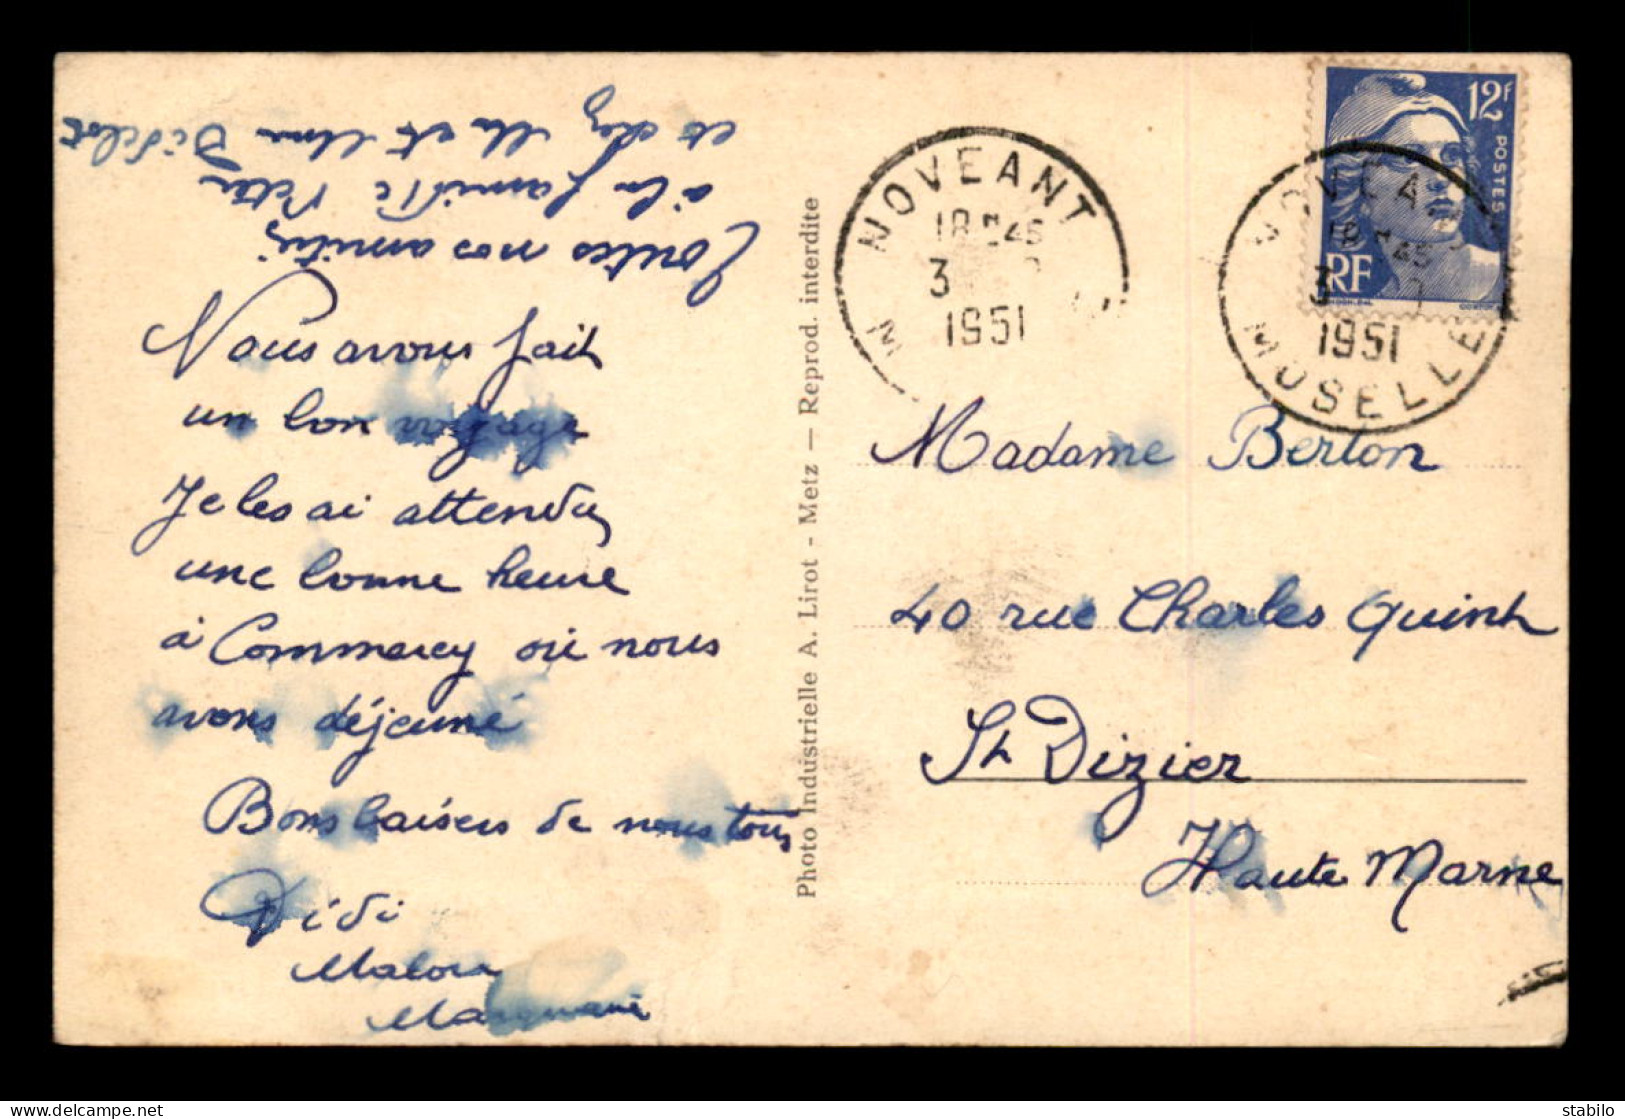 Nous avons fait
un bon voyage
Je les ai attendus
une bonne heure
à Commercy où nous
avons déjeuné
Bons baisers de nous tous
Didi
Toutes nos amitiés
à la famille
et chez et Didelot
Photo Industrielle A. Lirot - Metz — Reprod. interdite
NOVEANT
18 45
3
1951
M
12F
POSTES
RF
NOVEA
18 45
3
1951
MOSELLE
Madame Berton
40 rue Charles Quint
St Dizier
Haute Marne
stabilo